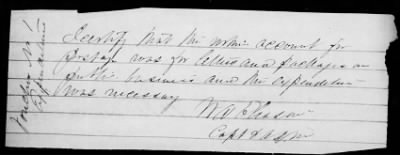 I certify that the within account for
postage was for letters and packages on
public business and the expenditure
was necessary
Capt & AQM
Voucher No 1
Expenditures